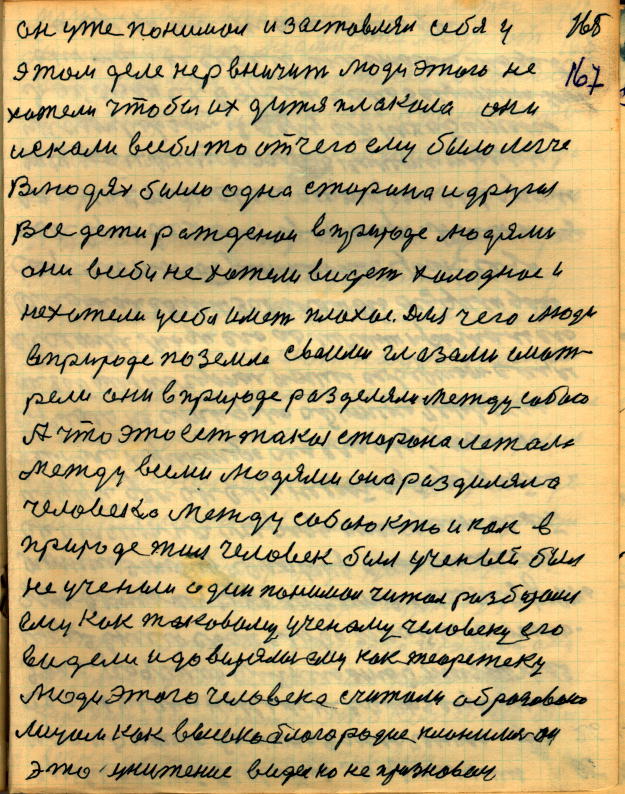 он уже понимал и заставлял себя у 168
этом деле нервничит люди этого не 167
хотели чтобы их дитя плакола они
искали в себя то от чего ему было легче
В людях было одна сторона и другая
Все дети раждении в природе людями
они в себи не хотели видет холоднае и
не хотели у себя имет плохое. Для чего люди
в природе по земле своими глазами смот-
рели они в природе разделяли между собою
А что это ест такая сторона летала
Между всеми людями она раздиляла
человека между собою кто и как в
природе жил человек был ученый был
не ученым один понимал читал разбирали
ему как таковому ученому человеку его
видели и доверяли ему как теоретеку
Люди этого человека считали образовано
лицом как высокоблагородие клонились
это унижение виде но не признован